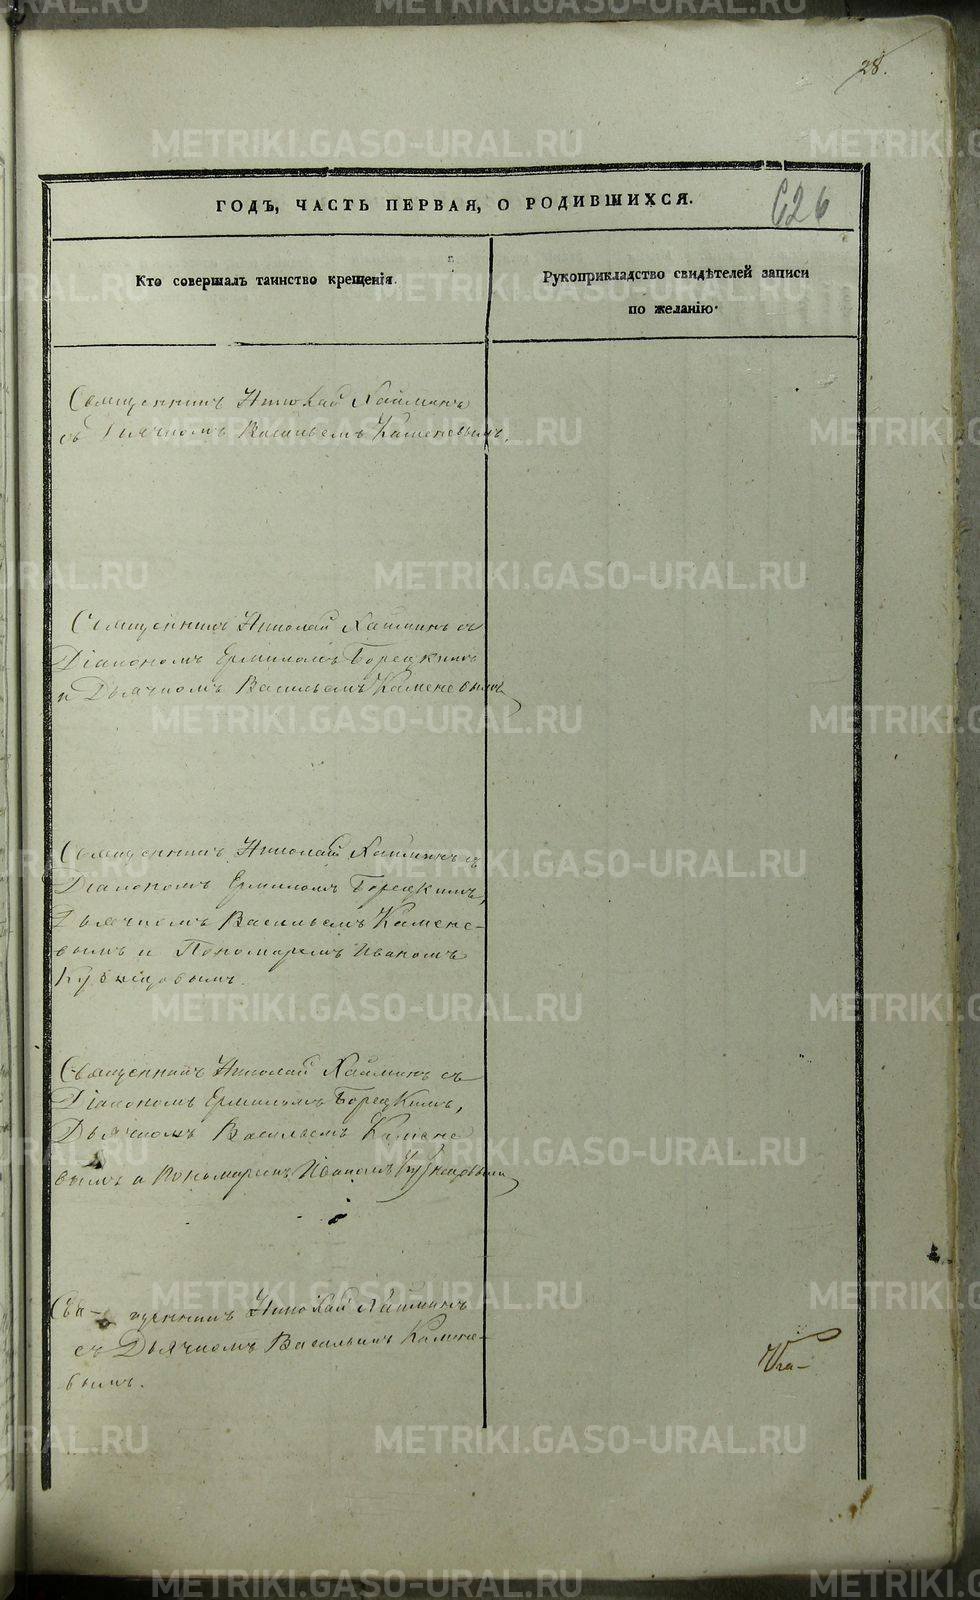 28.
626
ГОДЪ, ЧАСТЬ ПЕРВАЯ, О РОДИВШИХСЯ.
Кто совершалъ таинство крещенія.
Рукоприкладство свидѣтелей записи
по желанію.
Священникъ Николай
съ Дьячкомъ Васильемъ Каменевымъ.
Священникъ Николай съ
Діакономъ Ермиломъ Борецкимъ
и Дьячкомъ Васильемъ Каменевымъ
Священникъ Николай съ
Діакономъ Ермиломъ Борецкимъ,
Дьячкомъ Васильемъ Камене-
вымъ и Пономаремъ Иваномъ
Кузнецовымъ.
Священникъ Николай съ
Діакономъ Ермиломъ Борецкимъ,
Дьячкомъ Васильемъ Камене
вымъ и Пономаремъ Иваномъ Кузнецовымъ
Священникъ Николай
съ Дьячкомъ Васильемъ Камене-
вымъ.
METRIKI.GASO-URAL.RU